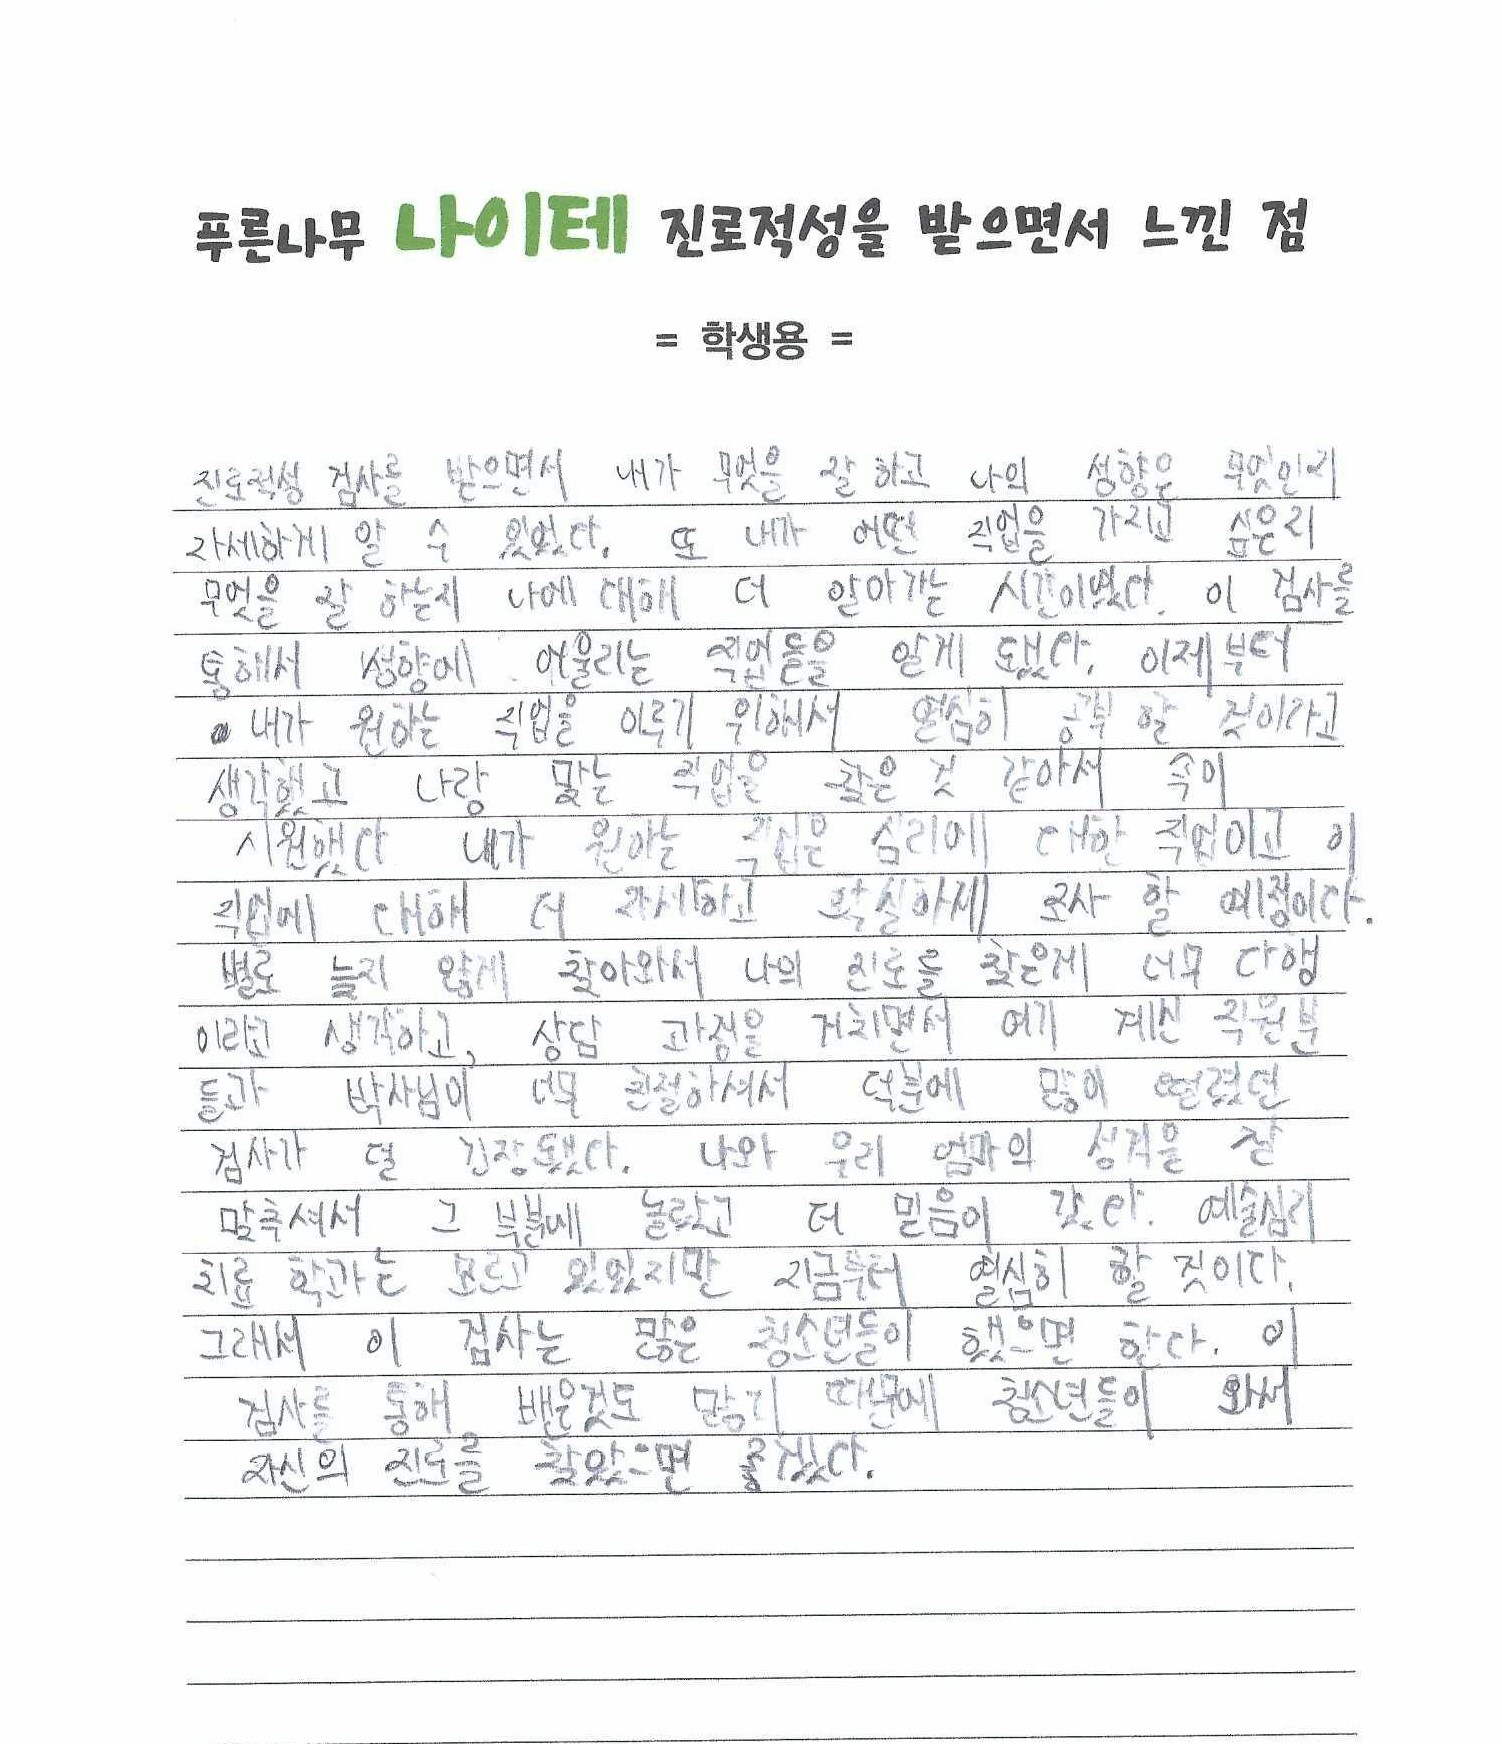 푸른나무 나이테 진로적성을 받으면서 느낀 점
= 학생용 =
진로적성 검사를 받으면서 내가 무엇을 잘 하고 나의 성향은 무엇인지
자세하게 알 수 있었다. 또 내가 어떤 직업을 가지고 싶은지
무엇을 잘 하는지 나에 대해 더 알아가는 시간이였다. 이 검사를
통해서 성향에 어울리는 직업들을 알게 됐었다. 이제부터
내가 원하는 직업을 이루기 위해서 열심히 공부 할 것이라고
생각했고 나랑 맞는 직업을 찾은 것 같아서 속이
시원했다 내가 원하는 직업은 심리에 대한 직업이고 이
직업에 대해 더 자세하고 확실하게 조사 할 예정이다.
별로 늦지 않게 찾아와서 나의 진로를 찾은게 너무 다행
이라고 생각하고, 상담 과정을 거치면서 여기 계신 직원분
들과 박사님이 너무 친절하셔서 덕분에 많이 떨렸던
검사가 덜 긴장됐었다. 나와 우리 엄마의 성격을 잘
맞추셔서 그 부분에 놀랐고 더 믿음이 갔다. 예술심리
치료 학과는 모르고 있었지만 지금부터 열심히 할 것이다.
그래서 이 검사는 많은 청소년들이 했으면 한다. 이
검사를 통해 배운것도 많기 때문에 청소년들이 와서
자신의 진로를 찾았으면 좋겠다.